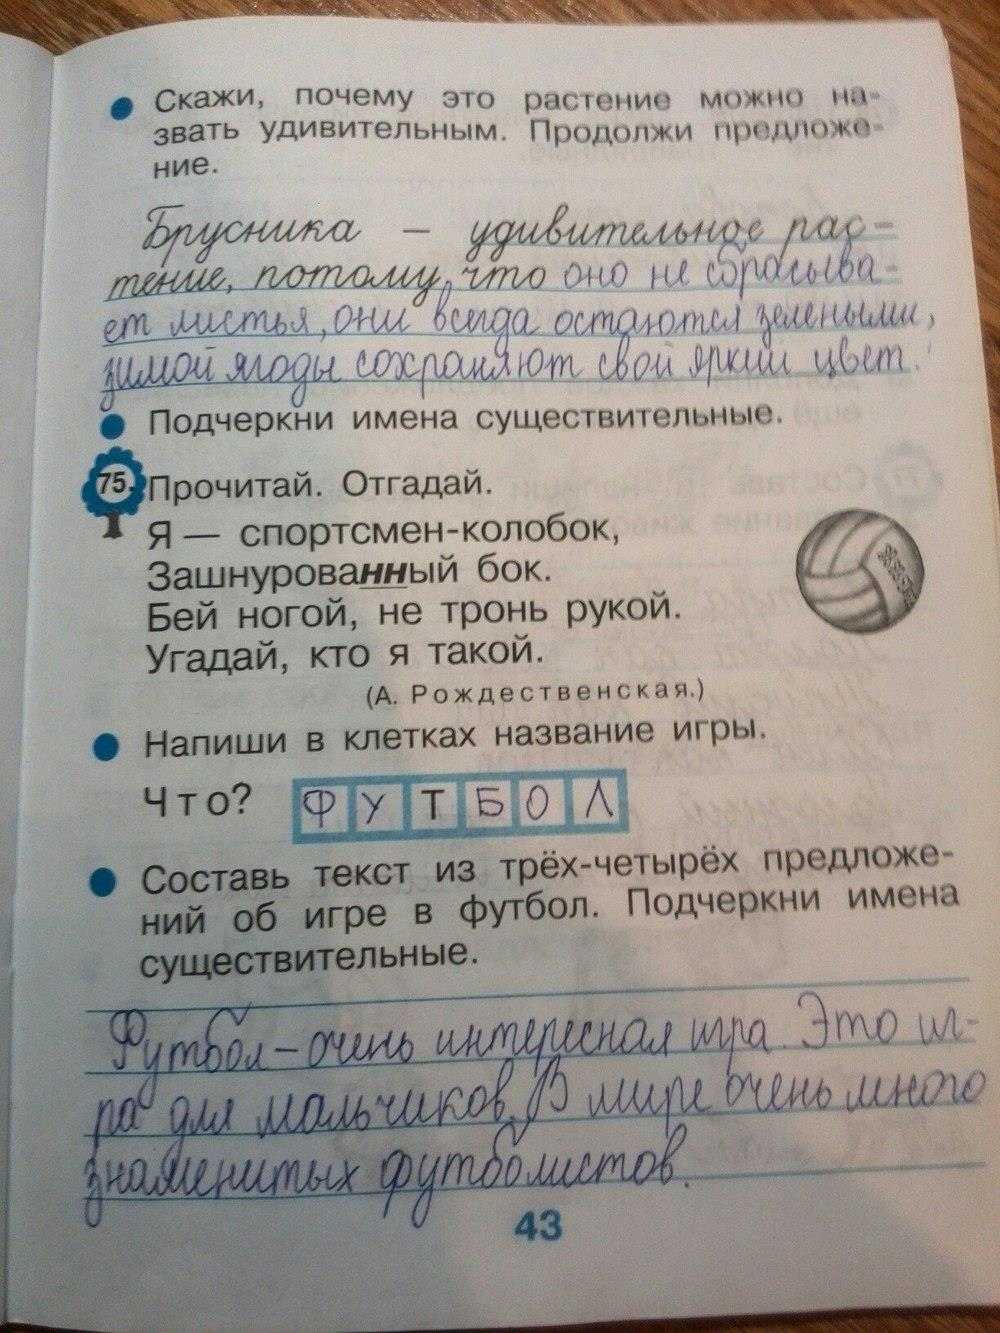 Скажи, почему это растение можно на-
звать удивительным. Продолжи предложе-
ние.
Брусника — удивительное рас-
тение, потому, что оно не сбрасыва-
ет листья, они всегда остаются зелеными,
зимой ягоды сохраняют свой яркий цвет.
Подчеркни имена существительные.
75. Прочитай. Отгадай.
Я — спортсмен-колобок,
Зашнурованный бок.
Бей ногой, не тронь рукой.
Угадай, кто я такой.
(А. Рождественская.)
Напиши в клетках название игры.
Что? ФУТБОЛ
Составь текст из трёх-четырёх предложе-
ний об игре в футбол. Подчеркни имена
существительные.
Футбол – очень интересная игра. Это иг-
ра для мальчиков. В мире очень много
знаменитых футболистов.
43